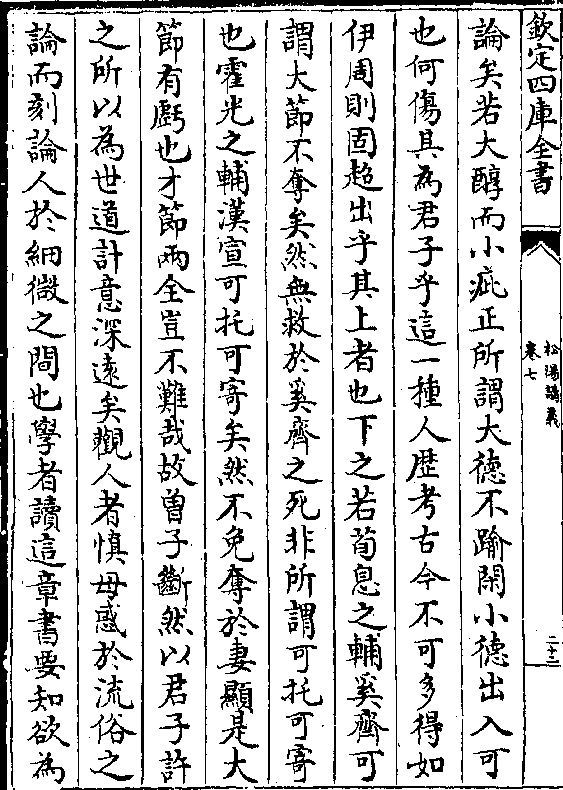 欽定四庫全書
松陽講義
卷七
二十三
論矣若大醇而小疵正所謂大德不踰閑小德出入可
也何傷其為君子乎這一種人歴考古今不可多得如
伊周則固超出乎其上者也下之若荀息之輔奚齊可
謂大節不奪矣然無救於奚齊之死非所謂可托可寄
也霍光之輔漢宣可托可寄矣然不免奪於妻顯是大
節有虧也才節兩全豈不難哉故曽子斷然以君子許
之所以為世道計意深遠矣觀人者慎毋惑於流俗之
論而刻論人於細微之間也學者讀這章書要知欲為